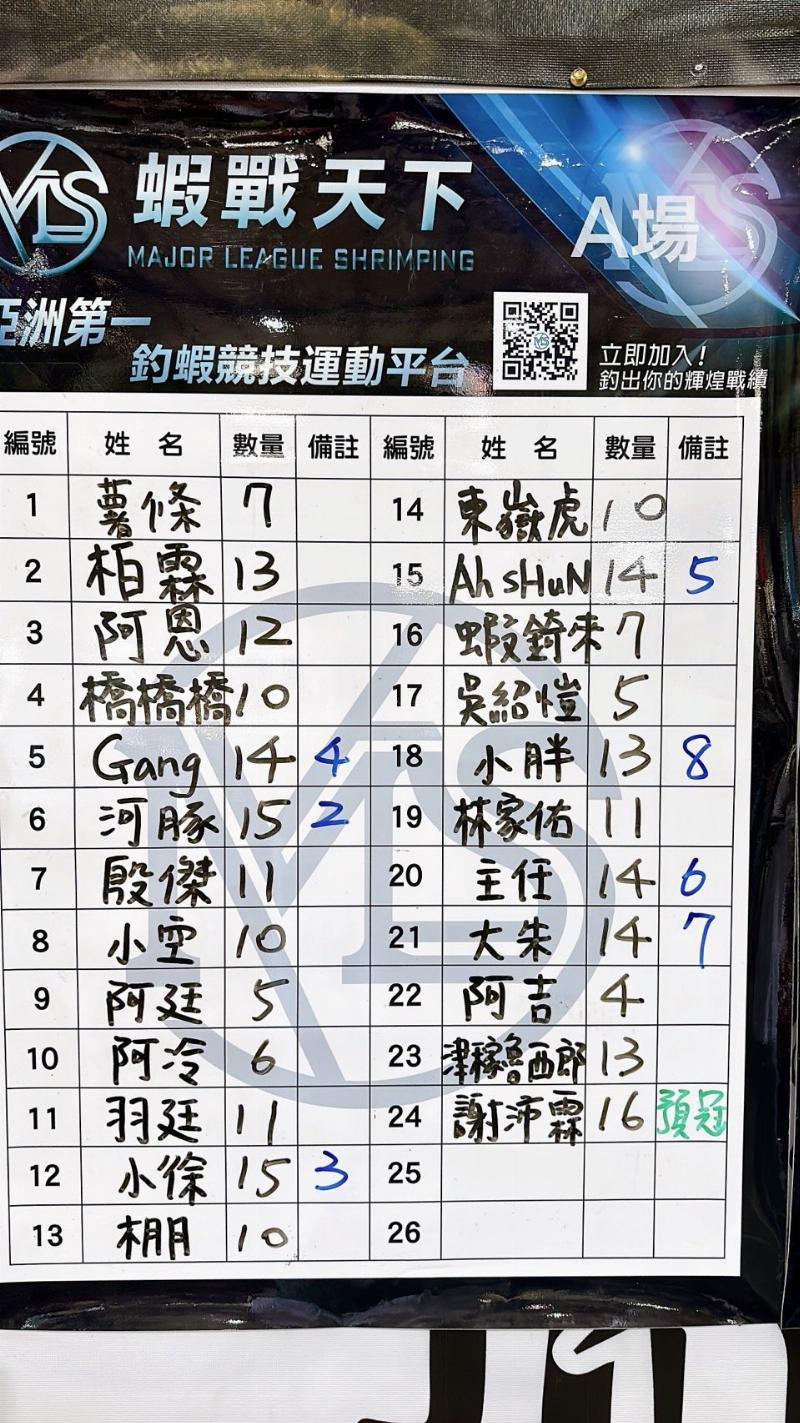 MLS 蝦戰天下 A場
MAJOR LEAGUE SHRIMPING
亞洲第一
釣蝦競技運動平台
立即加入!
釣出你的輝煌戰績
編號 姓名 數量 備註 編號 姓名 數量 備註
1 薯條 7 14 東嶽虎 10
2 柏霖 13 15 Ah sHuN 14 5
3 阿恩 12 16 蝦錡來 7
4 橋橋橋 10 17 吳紹愷 5
5 Gang 14 4 18 小胖 13 8
6 河豚 15 2 19 林家佑 11
7 殷傑 11 20 主任 14 6
8 小空 10 21 大朱 14 7
9 阿廷 5 22 阿吉 4
10 阿冷 6 23 津稼魯西郎 13
11 羽廷 11 24 謝沛霖 16 預冠
12 小徐 15 3 25
13 棚 10 26